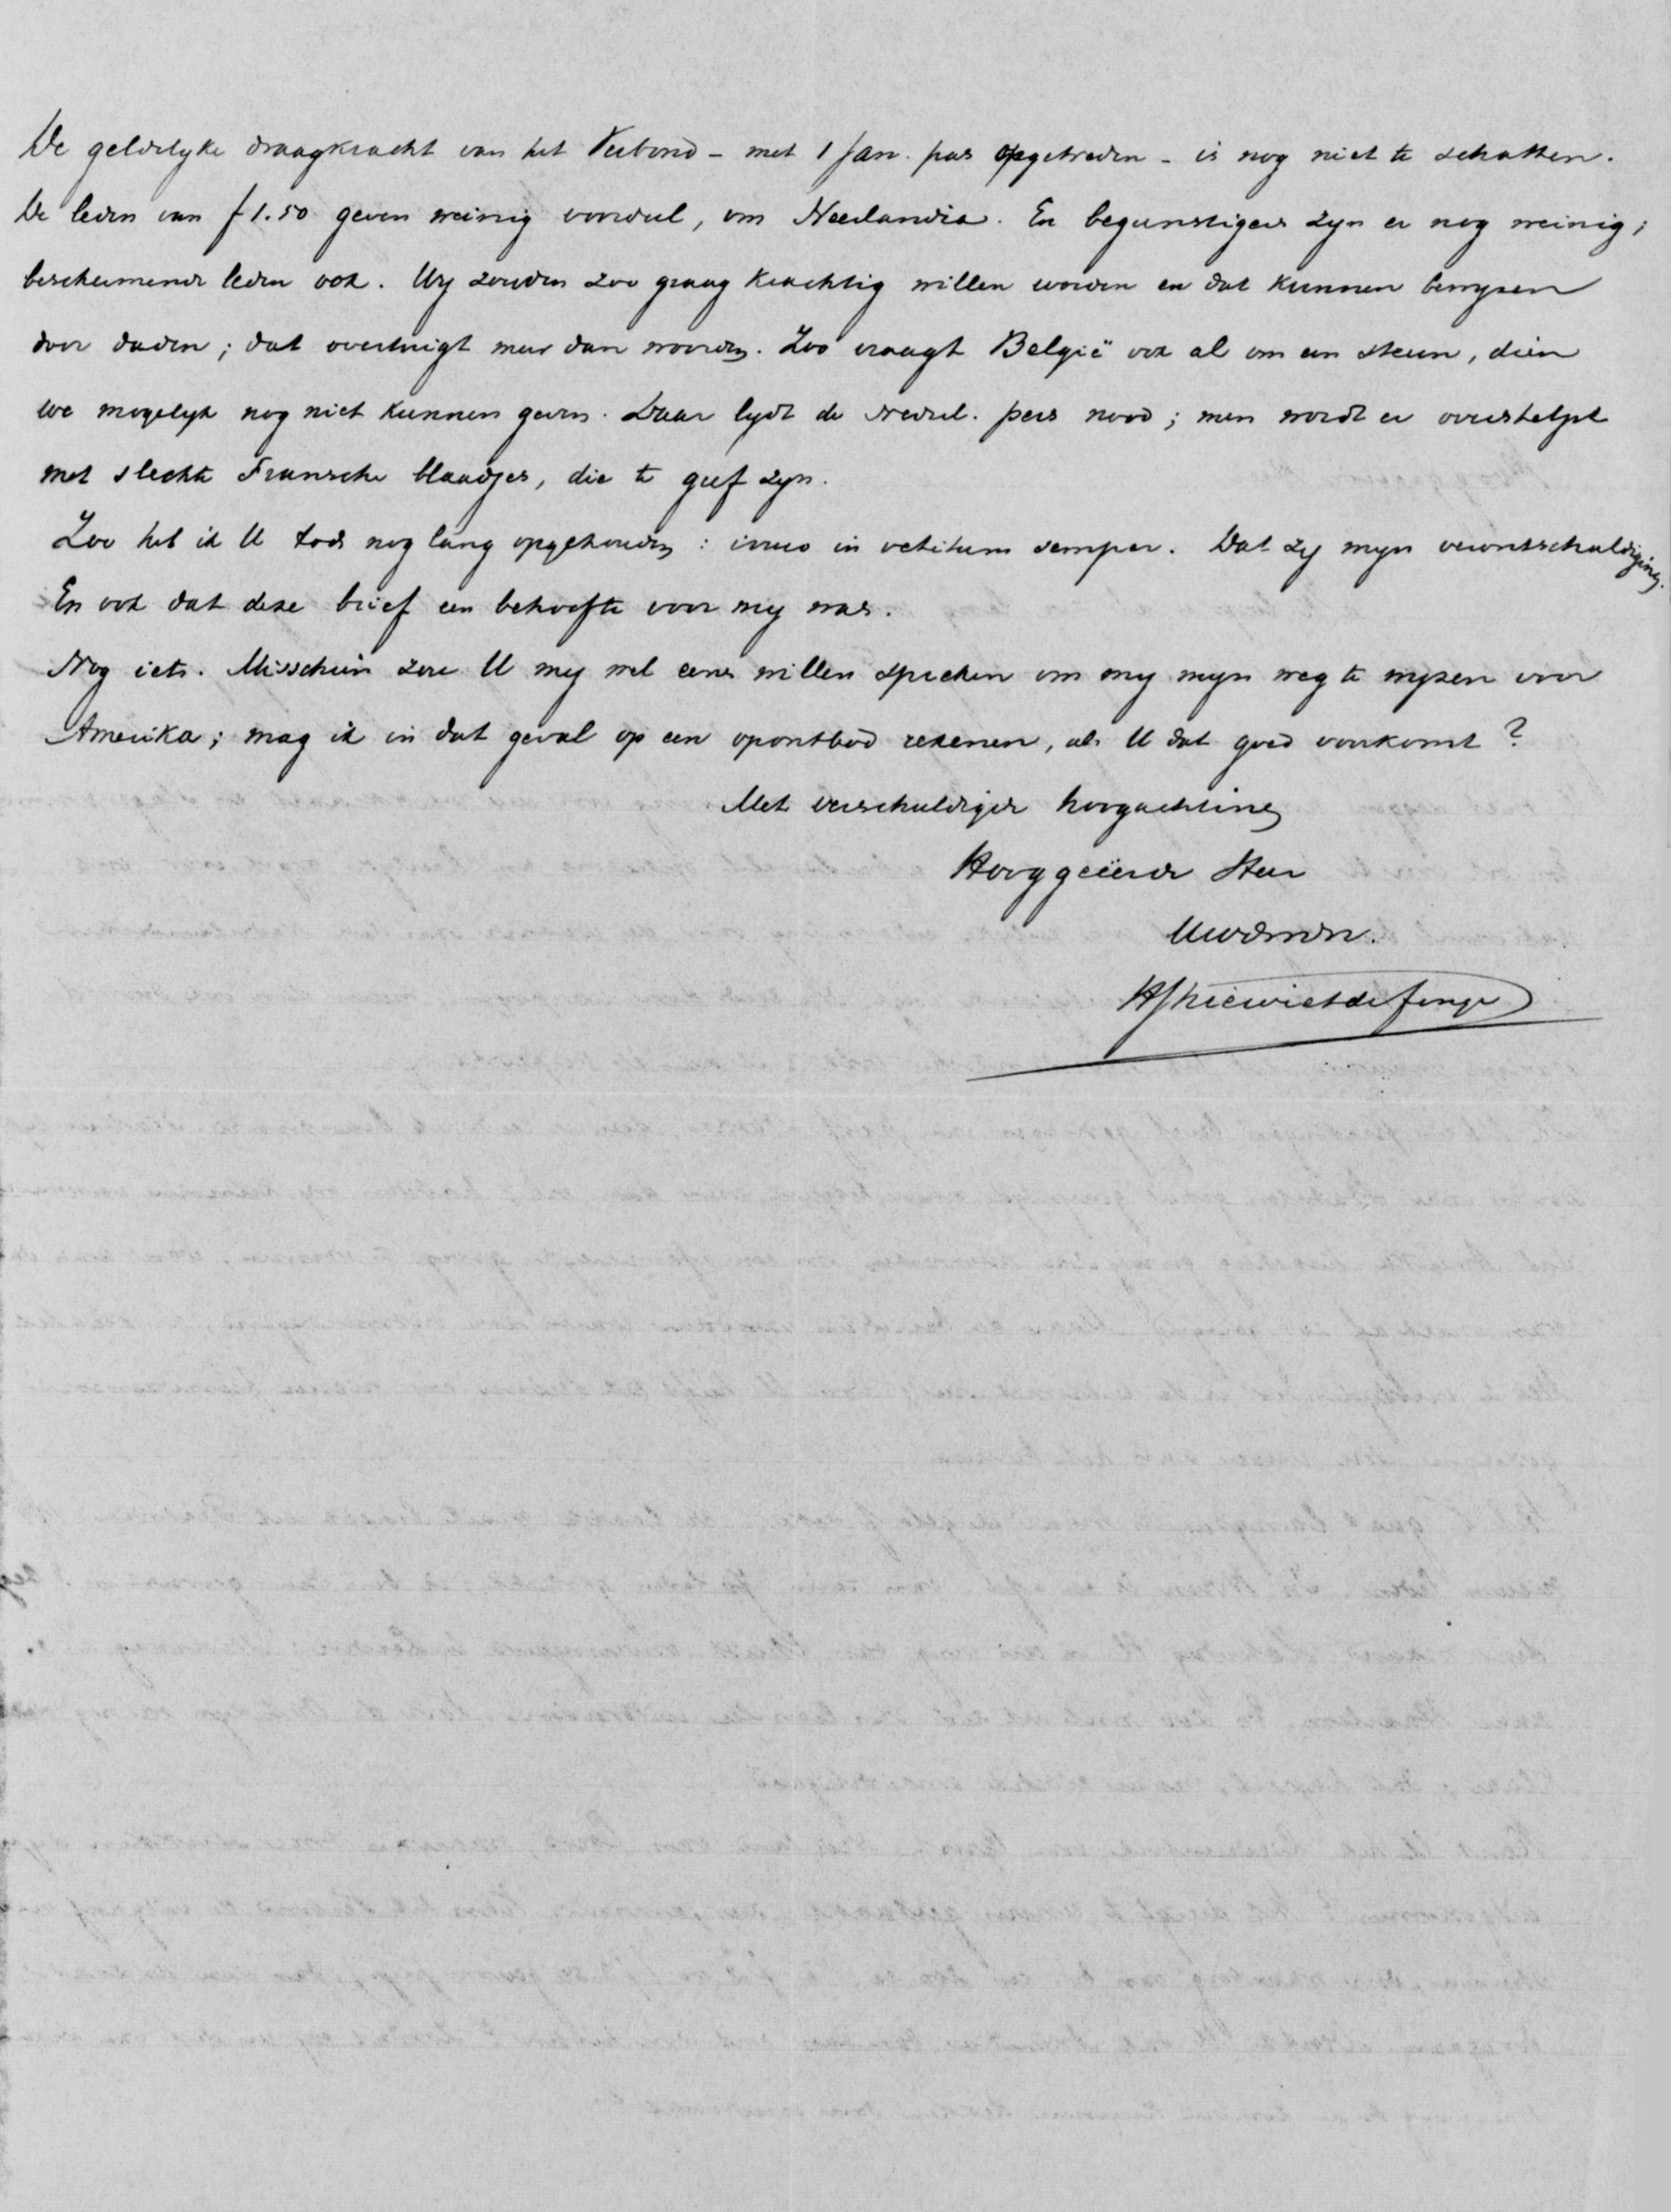 De geldelyke draagkracht van het Verbond - met 1 Jan. pas opgetreden - is nog niet te schatten.
De leden van f 1.50 geven weinig voordeel, om Neerlandia. En begunstigers zyn er nog weinig;
beschermende leden ook. Wy zouden zoo graag krachtig willen worden en dat kunnen bewyzen
door daden; dat overtuigt meer dan woorden. Zoo vraagt België ook al om een steun, dien
we mogelyk nog niet kunnen geven. Daar lydt de Nederl. pers nood; men wordt er overstelpt
met slechte Fransche blaadjes, die te geef zyn.
Zoo heb ik U toch nog lang opgehouden: ruo in vetitum semper. Dat zy myn verontschuldiging.
En ook dat deze brief een behoefte voor my was.
Nog iets. Misschien zou U my wel eens willen spreken om my myn weg te wyzen voor
Amerika; mag ik in dat geval op een opontbod rekenen, als U dat goed voorkomt?
Met verschuldigde hoogachting
Hooggeëerde Heer
Uwdwdr.
HJKiewietdeJonge